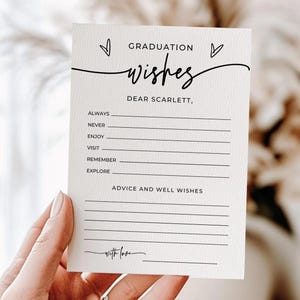 GRADUATION
wishes
DEAR SCARLETT,
ALWAYS
NEVER
ENJOY
VISIT
REMEMBER
EXPLORE
ADVICE AND WELL WISHES
with love